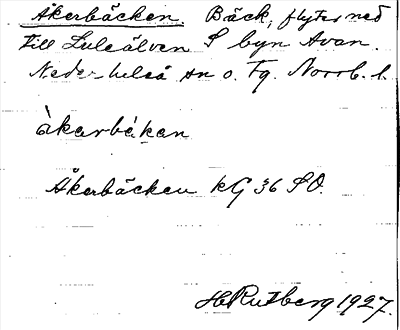 Åkerbäcken. Bäck, flyter ned
till Luleälven S byn Avan.
Neder luleå sn o. Tg. Norrb. l.
àkarbäkan
Åkerbäcken kG 36 SO.
H Rutberg 1927.